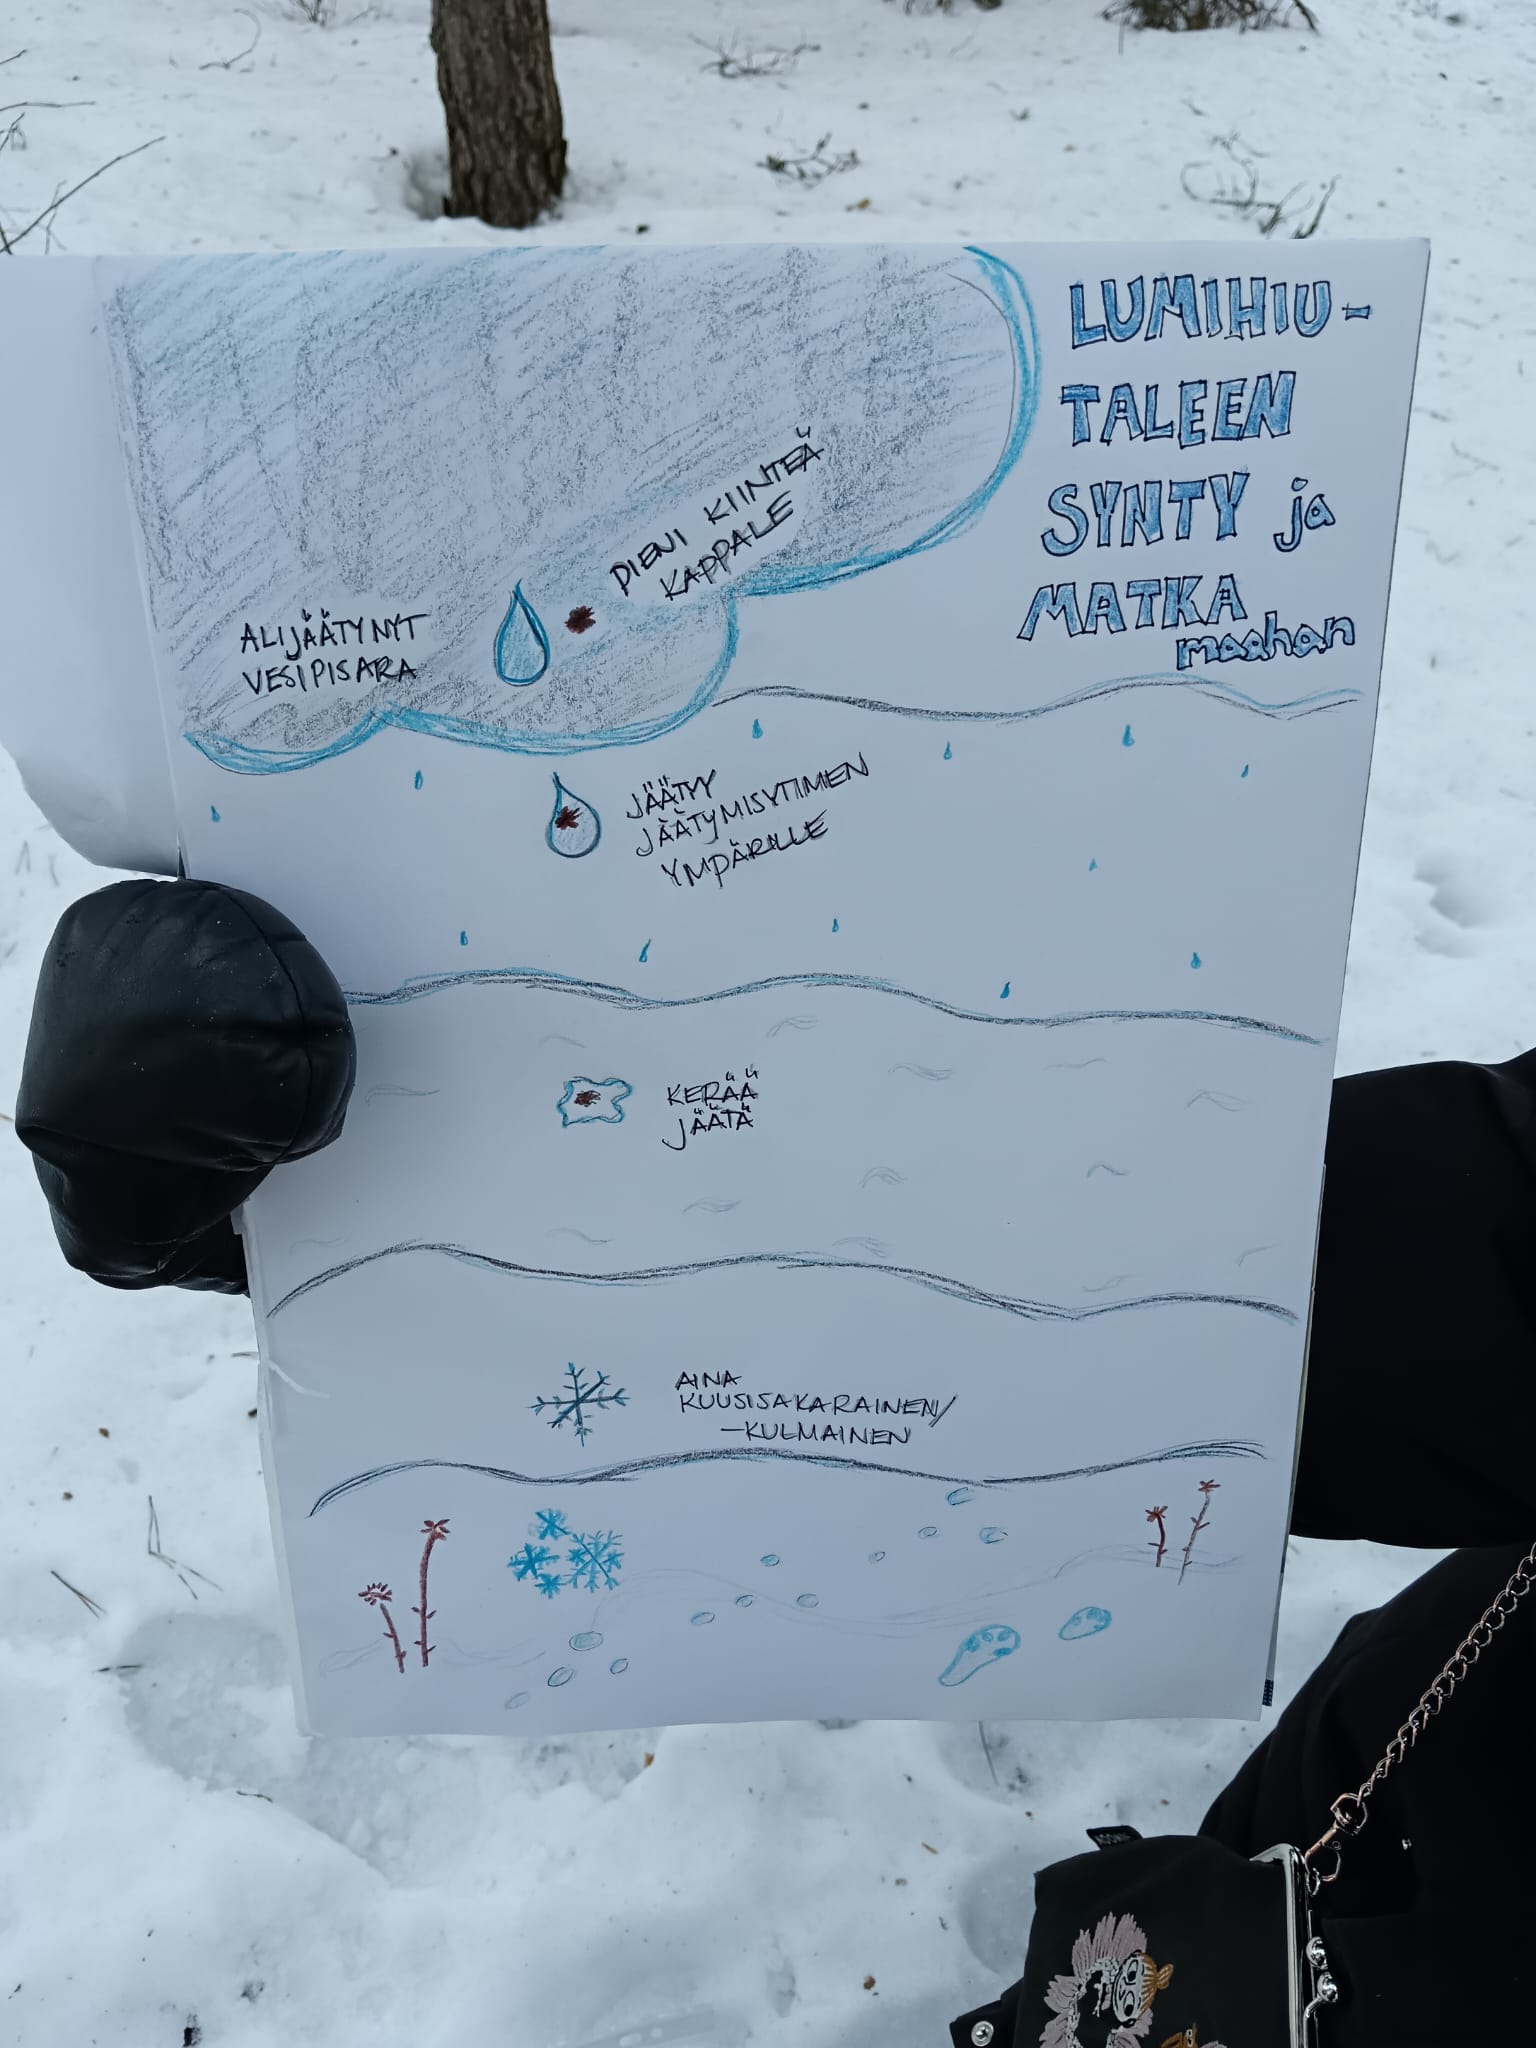 LUMIHIU-
TALEEN
SYNTY ja
MATKA
maahan
PIENI KIINTEÄ
KAPPALE
ALIJÄÄTYNYT
VESIPISARA
JÄÄTYY
JÄÄTYMISYTIMEN
YMPÄRILLE
KERÄÄ
JÄÄTÄ
AINA
KUUSISAKARAINEN/
-KULMAINEN